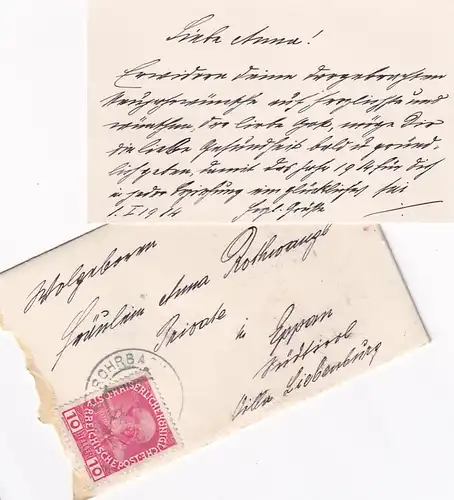 Liebe Anna!
Erwidere deine dargebrachten
Neujahrswünsche auf herzlichste und
wünschen, der liebe Gott, möge Dir
die liebe Gesundheit bald u. gründ-
lich geben, damit das Jahr 1914 für Dich
in jeder Beziehung ein glückliches sei
1. I. 1914 Herzl. Grüße
Wolgeboren
Fräulein Anna Rothwangl
Private in Eppan
Südtirol
Villa Liebenburg
ROHRBA
10 HELLER 10
KAISERLICHE KÖNIGLICHE
ÖSTERREICHISCHE POST